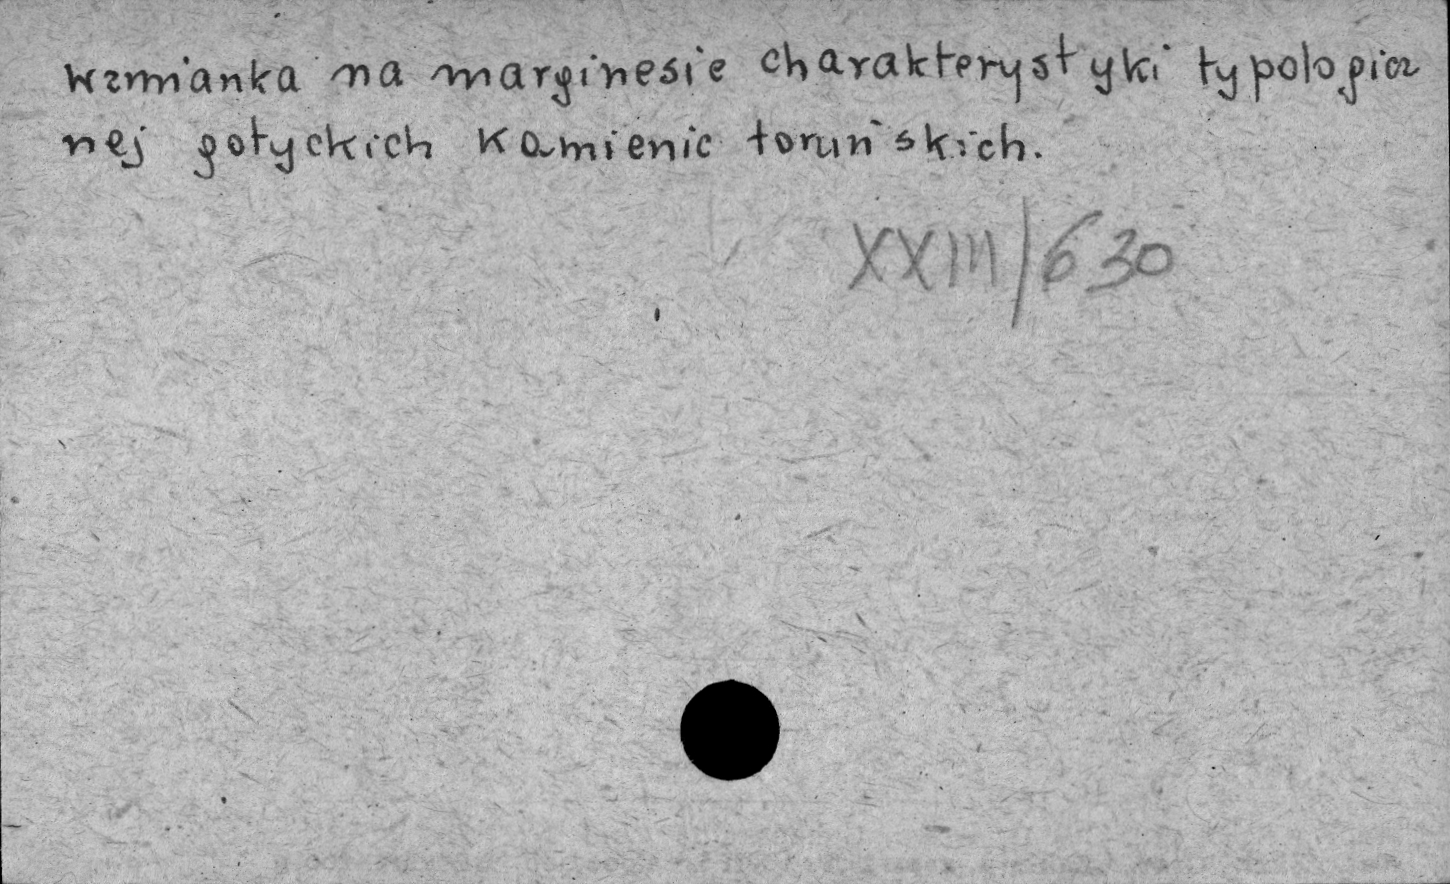 wzmianka na marginesie charakterystyki typologicz
nej gotyckich kamienic toruńskich.
XXIII/630